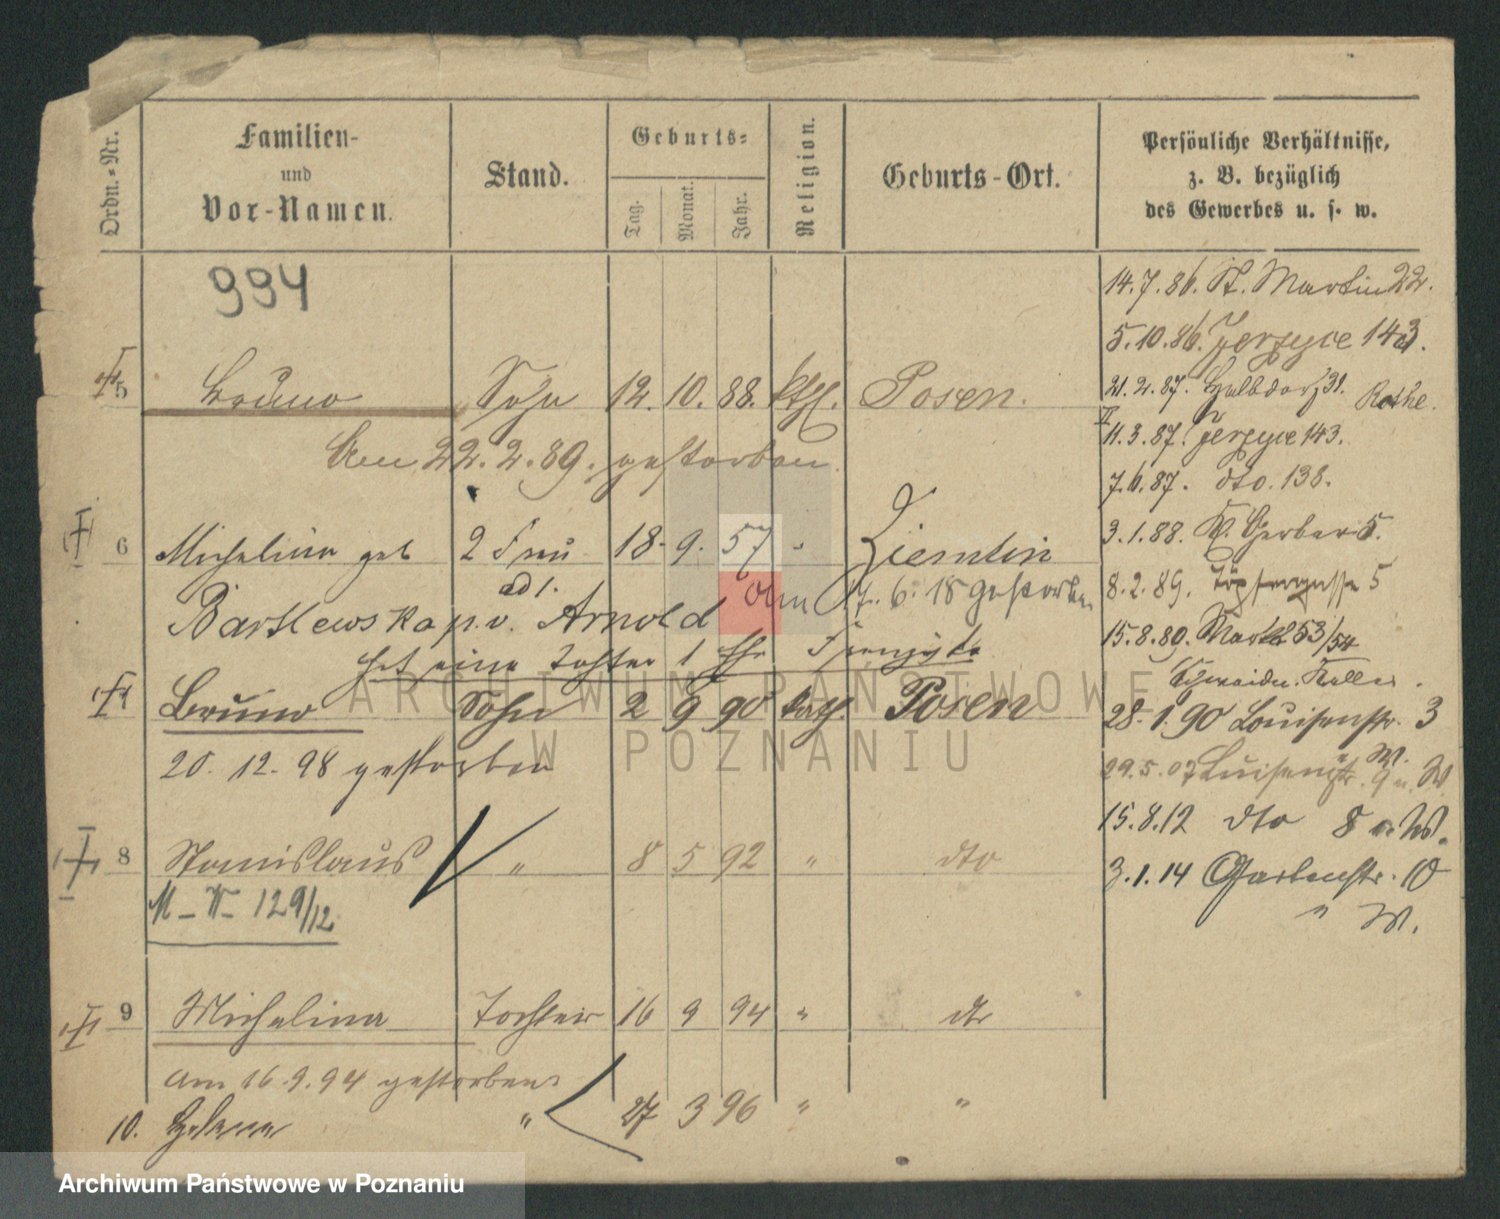 Ordn.-Nr.
Familien-
und
Vor-Namen.
Stand.
Geburts-
Tag.
Monat.
Jahr.
Religion.
Geburts-Ort.
Persönliche Verhältnisse,
z. B. bezüglich
des Gewerbes u. s. w.
994
14.7.86. St. Martin 22.
5.10.86. Jerzyce 143.
5 Bruno Sohn 12. 10. 88. kth. Posen.
21.2.87. Halbdorf 31.
11.3.87. Jerzyce 143.
Am 22.2.89. gestorben.
7.6.87. dto. 138.
3.1.88. Gerber 5.
6 Michalina geb 2 Frau 18. 9. 57 "
8.2.89. Töpfergasse 5
ad 1. am 17.6.18 gestorben
Bartlewska p.v. Arnold
15.8.89. Markt 53/54
hat eine Tochter 1 Ehe
Bruno Sohn 2 9 90 kath. Posen
28.1.90 Louisenstr. 3
20.12.98 gestorben
29.5.07 Luisenstr. 9 W.
15.8.12 dto 8 W.
8 Stanislaus " 8 5 92 " dto
3.1.14 Gartenstr. 10
M-W- 129/12
" W.
9 Michalina Tochter 16 9 94 " dto
am 16.9.94 gestorben
10. Helena " 27 3 96 " "
ARCHIWUM PAŃSTWOWE
W POZNANIU
Archiwum Państwowe w Poznaniu